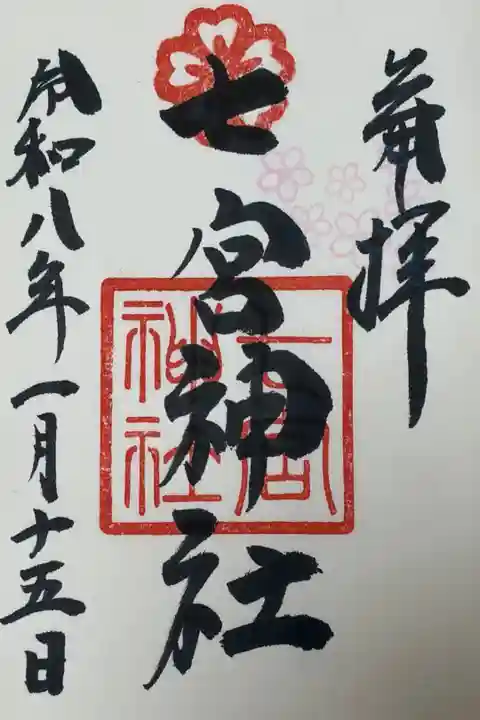 奉拝
七宮神社
七宮
神社
令和八年一月十五日